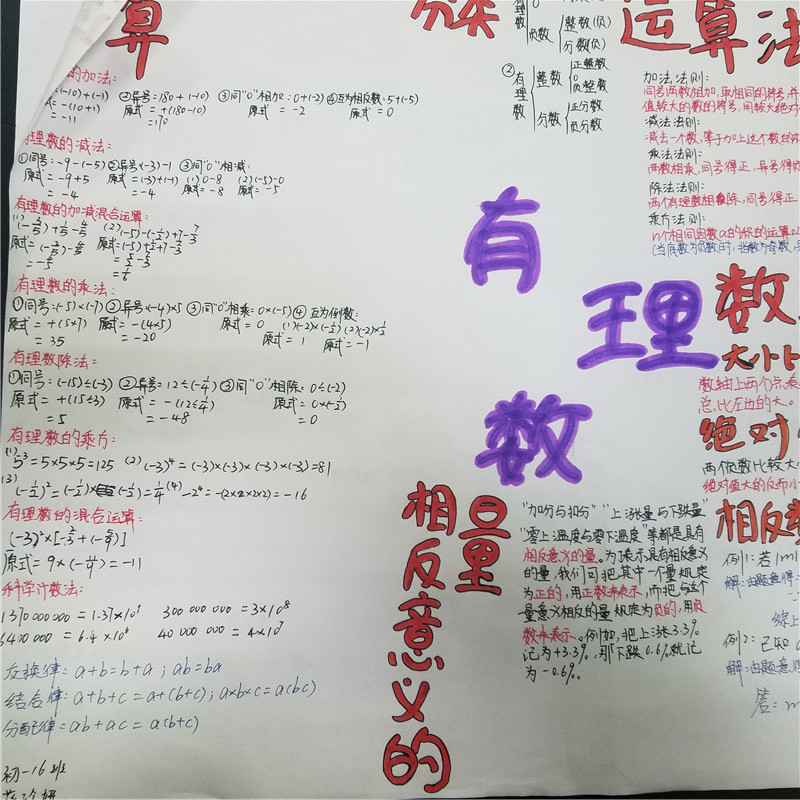 算
的加法:
=(-10)+(-1) ②异号:180+(-10) ③同"0"相加:0+(-2) ④互为相反数:5+(-5)
=-(10+1) 原式=+(180-10) 原式=-2 原式=0
=-11 =170
有理数的减法:
①同号:-9-(-5) ②异号(-3)-1 ③同"0"相减:
原式=-9+5 原式=(-3)+(-1) (1)0-8 (2)(-5)-0
=-4 =-4 原式=-8 原式=-5
有理数的加减混合运算:
有理数的乘法:
①同号:(-5)×(-7) ②异号(-4)×5 ③同"0"相乘:0×(-5) ④互为倒数:
原式=+(5×7) 原式=-(4×5) 原式=0 (1)(-2)×(-1/2) (2)(-2)×1/2
=35 =-20 原式=1 原式=-1
有理数除法:
①同号:(-15)÷(-3) ②异号:12÷(-1/4) ③同"0"相除:0÷(-2)
原式=+(15÷3) 原式=-(12÷1/4) 原式=0×(-1/2)
=5 =-48 =0
有理数的乘方:
(1)5³=5×5×5=125 (2)(-3)⁴=(-3)×(-3)×(-3)×(-3)=81
(3)(-1/2)²=(-1/2)×(-1/2)=1/4 (4)-2⁴=-(2×2×2×2)=-16
有理数的混合运算:
(-3)²×[-2/3+(-5/9)]
原式=9×(-11/9)=-11
科学计数法:
1370000000=1.37×10⁹ 300 000 000=3×10⁸
6400 000=6.4×10⁶ 40 000 000=4×10⁷
交换律:a+b=b+a;ab=ba
结合律:a+b+c=a+(b+c);a×b×c=a(bc)
分配律:ab+ac=a(b+c)
初一16班
有理数
0
负数
整数(负)
分数(负)
②有理数
整数
正整数
0
负整数
分数
正分数
负分数
有
理
数
相反意义的
量
"加分与扣分""上涨量与下跌量"
"零上温度与零下温度"等都是具有
相反意义的量。为了表示具有相反意义
的量,我们可把其中一个量规定
为正的,用正数来表示,而把与这个
量意义相反的量规定为负的,用负
数来表示。例如,把上涨3.3%
记为+3.3%,那下跌0.6%就记
为-0.6%。
运算法
加法法则:
同号两数相加,取相同的符号,并
值较大的数的符号,用较大绝对
减法法则:
减去一个数,等于加上这个数的
乘法法则:
两数相乘,同号得正,异号得
除法法则:
两个有理数相除,同号得正
乘方法则:
n个相同因数a的积的运算
数
大小
数轴上两个点,
总比左边的大。
绝对
两个负数比较大
绝对值大的反而小
相反
例1:若|m
解:由题意得:
综上
例2:已知
解:由题意得
答: